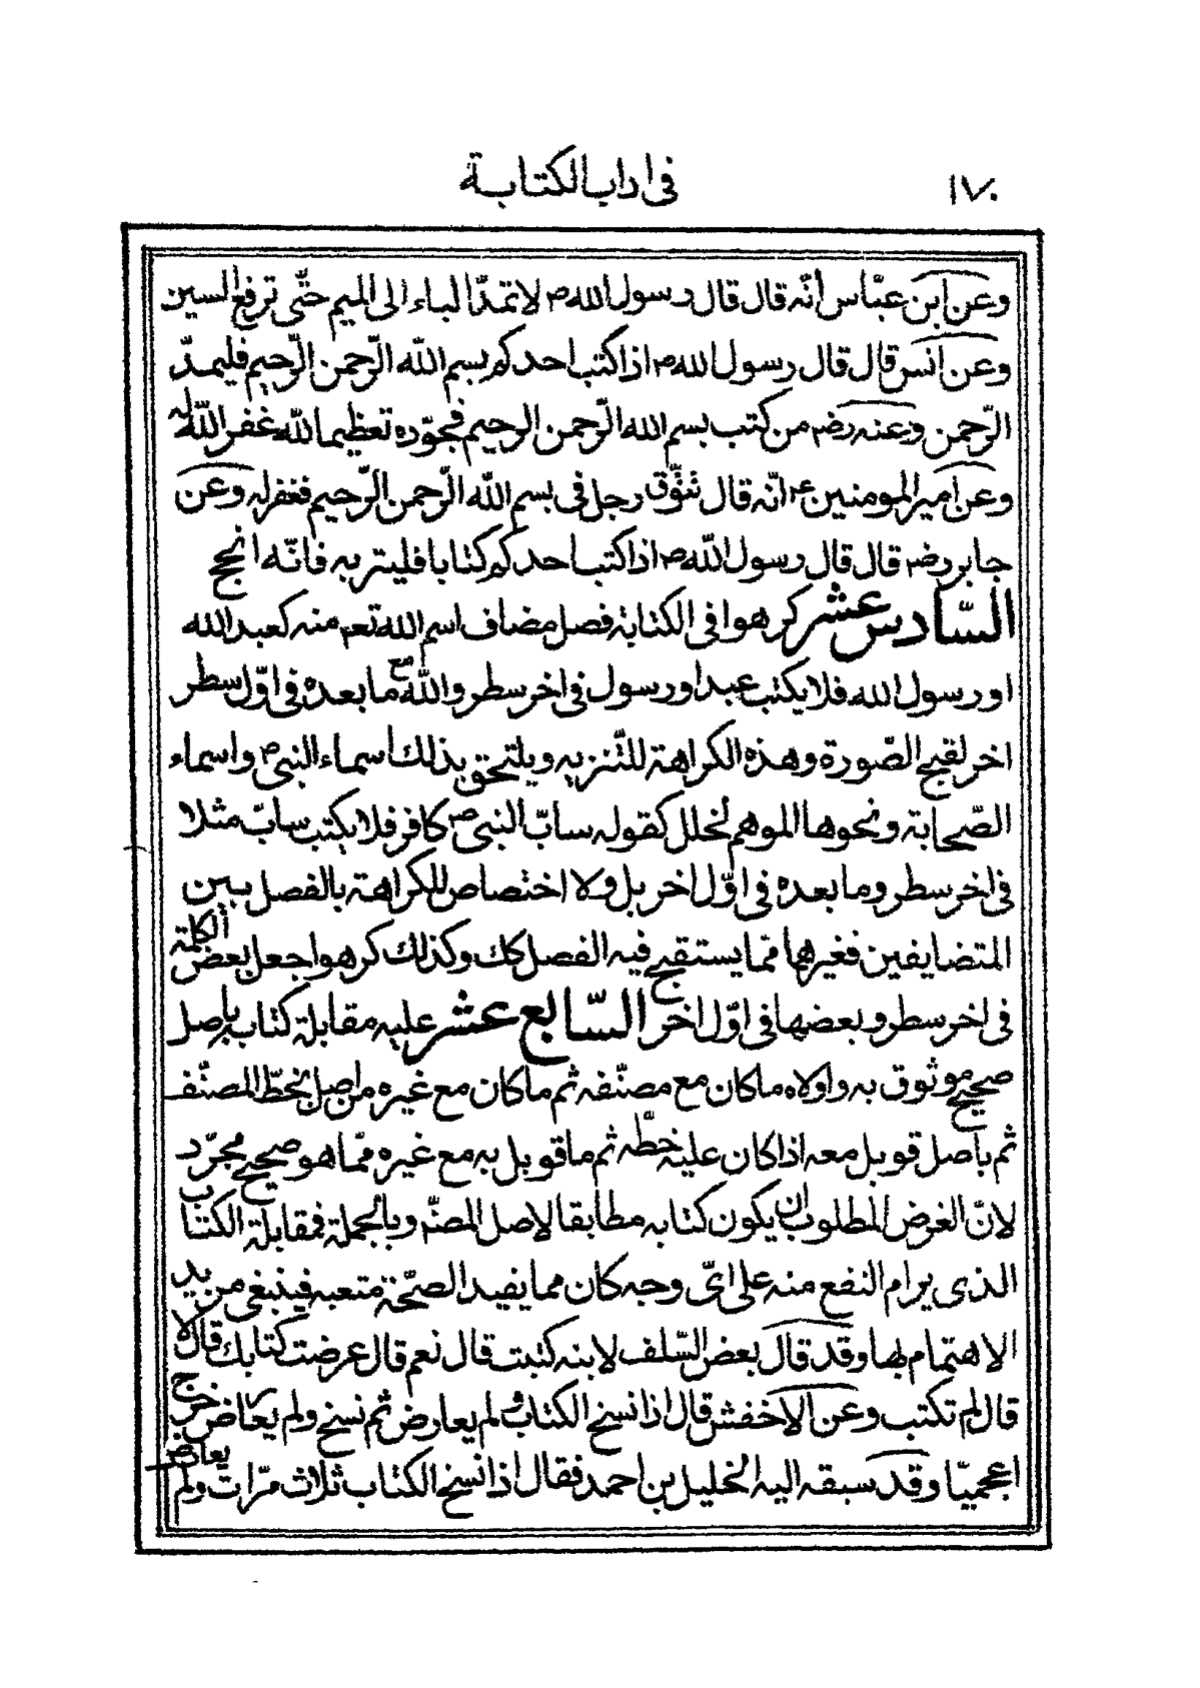 ١٧٠
فى اداب الكتابة
وعن ابن عبّاس أنّه قال قال رسول الله ص لا تمدّ الباء الى الميم حتّى ترفع السين
وعن انس قال قال رسول الله ص اذا كتب احدكم بسم اللّه الرّحمن الرّحيم فليمدّ
الرّحمن وعنه رضه من كتب بسم الله الرّحمن الرحيم فجوّده تعظيما للّه غفر اللّه له
وعن امير المومنين ع انّه قال تنوّق رجل فى بسم اللّه الرّحمن الرّحيم فغفر له وعن
جابر رضه قال قال رسول اللّه ص اذا كتب احدكم كتابا فليتربه فانّه انجح
السّادس عشر كرهوا فى الكتابة فصل مضاف اسم الله تعم منه كعبد الله
او رسول الله فلا يكتب عبد او رسول فى اخر سطر واللّه مع ما بعده فى اوّل سطر
اخر لقبح الصّورة وهذه الكراهة للتّنزيه ويلتحق بذلك اسماء النبى ص واسماء
الصّحابة ونحوها الموهم لخلل كقوله سابّ النبى ص كافر فلا يكتب سابّ مثلا
فى اخر سطر وما بعده فى اوّل اخر بل ولا اختصاص للكراهة بالفصل بين
المتضايفين فغيرهما ممّا يستقبح فيه الفصل كك وكذلك كرهوا جعل بعض الكلمة
فى اخر سطر وبعضها فى اوّل اخر السّابع عشر عليه مقابلة كتابه باصل
صحيح موثوق به واولاه ما كان مع مصنّفه ثم ما كان مع غيره من اصل بخطّ المصنّف
ثم باصل قوبل معه اذا كان عليه خطّه ثم ما قوبل به مع غيره ممّا هو صحيح مجرّد
لانّ الغرض المطلوب ان يكون كتابه مطابقا لاصل المصنّم وبالجملة فمقابلة الكتاب
الذى يرام النفع منه على اىّ وجه كان مما يفيد الصّحّة متعبه فينبغى مزيد
الاهتمام بها وقد قال بعض السّلف لابنه كتبت قال نعم قال عرضت كتابك قال لا
قال لم تكتب وعن الاخفش قال اذا نسخ الكتاب ولم يعارض ثم نسخ ولم يعارض خرج
اعجميّا وقد سبقه اليه الخليل بن احمد فقال اذا نسخ الكتاب ثلاث مرّات ولم يعارض